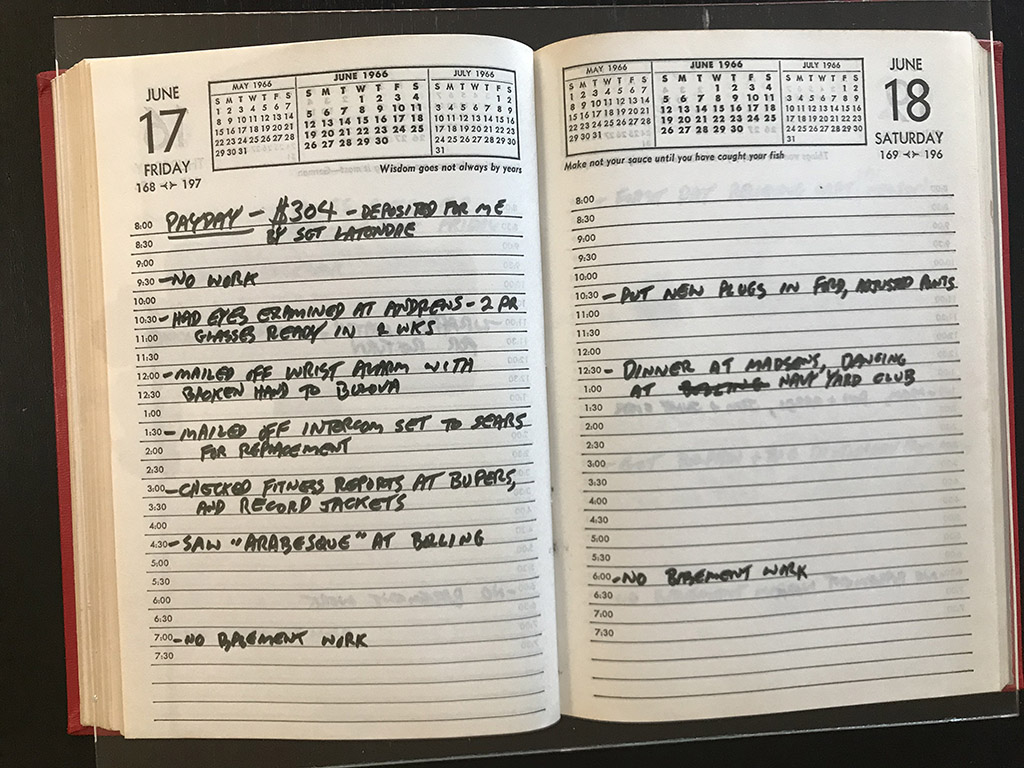 JUNE
17
FRIDAY
168 -<>- 197
MAY 1966
S M T W T F S
1 2 3 4 5 6 7
8 9 10 11 12 13 14
15 16 17 18 19 20 21
22 23 24 25 26 27 28
29 30 31
JUNE 1966
S M T W T F S
1 2 3 4
5 6 7 8 9 10 11
12 13 14 15 16 17 18
19 20 21 22 23 24 25
26 27 28 29 30
JULY 1966
S M T W T F S
1 2
3 4 5 6 7 8 9
10 11 12 13 14 15 16
17 18 19 20 21 22 23
24 25 26 27 28 29 30
31
Wisdom goes not always by years
8:00 PAYDAY - $304 - DEPOSITED FOR ME
8:30 BY SGT LATONDRE
9:00
9:30 - NO WORK
10:00
10:30 - HAD EYES EXAMINED AT ANDREWS - 2 PR
11:00 GLASSES READY IN 2 WKS
11:30
12:00 - MAILED OFF WRIST ALARM WITH
12:30 BROKEN HAND TO BULOVA
1:00
1:30 - MAILED OFF INTERCOM SET TO SEARS
2:00 FOR REPLACEMENT
2:30
3:00 - CHECKED FITNESS REPORTS AT BUPERS,
3:30 AND RECORD JACKETS
4:00
4:30 - SAW "ARABESQUE" AT BOLLING
5:00
5:30
6:00
6:30
7:00 - NO BASEMENT WORK
7:30
MAY 1966
S M T W T F S
1 2 3 4 5 6 7
8 9 10 11 12 13 14
15 16 17 18 19 20 21
22 23 24 25 26 27 28
29 30 31
JUNE 1966
S M T W T F S
1 2 3 4
5 6 7 8 9 10 11
12 13 14 15 16 17 18
19 20 21 22 23 24 25
26 27 28 29 30
JULY 1966
S M T W T F S
1 2
3 4 5 6 7 8 9
10 11 12 13 14 15 16
17 18 19 20 21 22 23
24 25 26 27 28 29 30
31
JUNE
18
SATURDAY
169 -<>- 196
Make not your sauce until you have caught your fish
8:00
8:30
9:00
9:30
10:00
10:30 - PUT NEW PLUGS IN FORD, ADJUSTED POINTS
11:00
11:30
12:00
12:30 - DINNER AT MADSENS, DANCING
1:00 AT NAVY YARD CLUB
1:30
2:00
2:30
3:00
3:30
4:00
4:30
5:00
5:30
6:00 - NO BASEMENT WORK
6:30
7:00
7:30